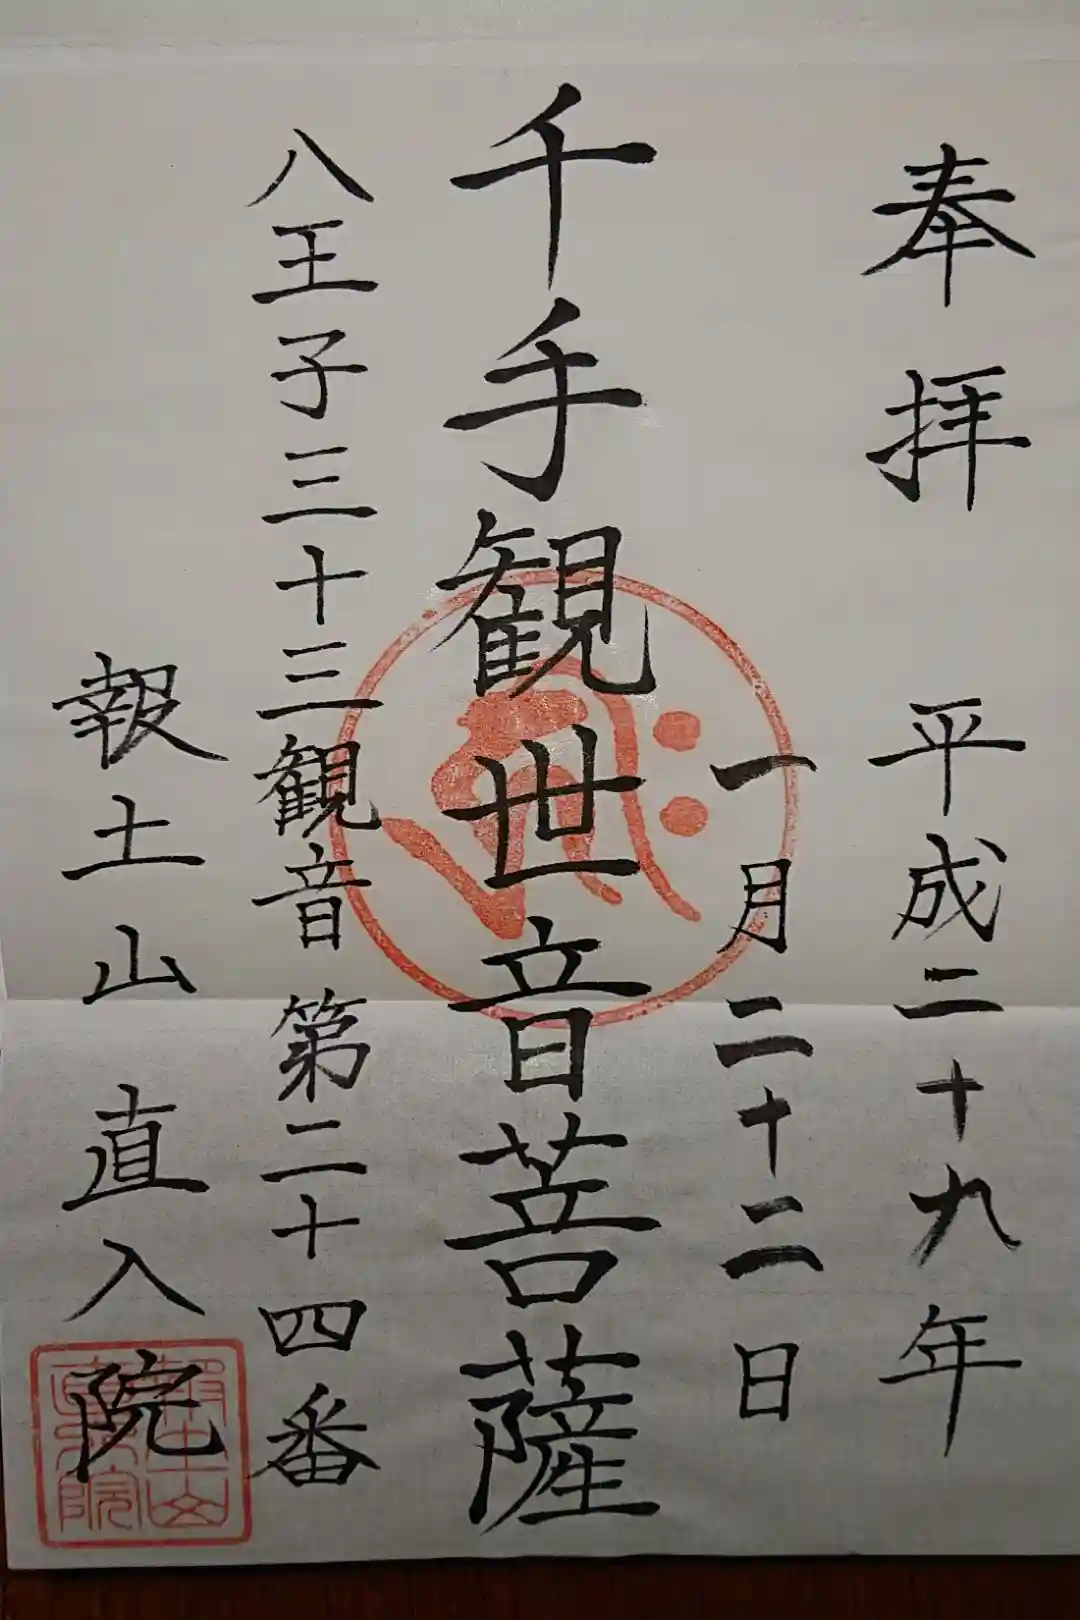 奉拝 平成二十九年
一月二十二日
千手観世音菩薩
八王子三十三観音 第二十四番
報土山 直入院
報土山
直入院